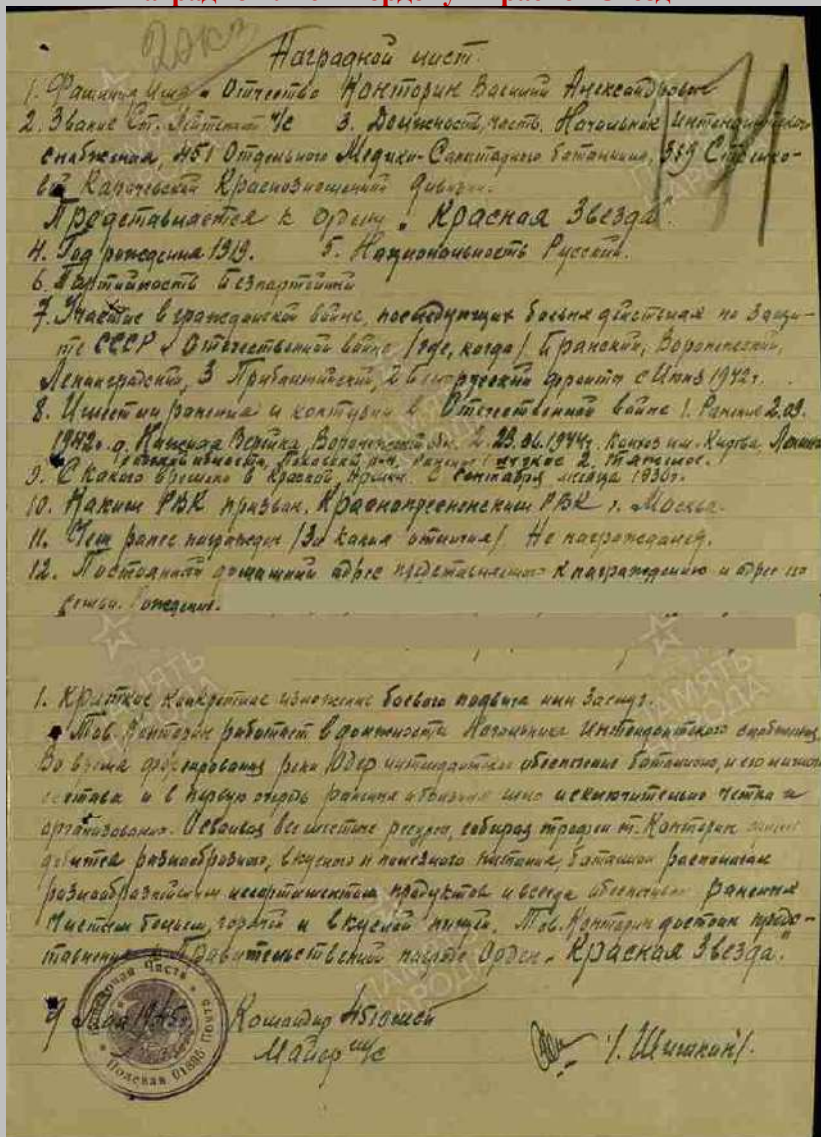 Наградной лист.
1. Фамилия, Имя и Отчество Конторин Василий Александрович
2. Звание Ст. Лейтенант 3. Должность, часть. Начальник Интендантского
снабжения, 451 Отдельного Медико-Санитарного батальона, 389 Стрелко-
вой Краснознаменной дивизии.
Представляется к Ордену „Красная Звезда".
4. Год рождения 1919. 5. Национальность Русский.
6. Партийность Безпартийный
7. Участие в гражданской войне, последующих боевых действиях по защи-
те СССР и Отечественной войне /где, когда/ Брянский, Воронежский,
Ленинградский, 3 Прибалтийский, 2 Белорусский фронты с 1942 г.
8. Имеет ли ранения и контузии в Отечественной войне 1. Ранение 2.09.
1942г. д. Воронежской обл. 2. 23.06.1944г. Колхоз им. Кирова,
2. тяжелое.
9. С какого времени в Красной Армии. С сентября месяца 1930г.
10. Каким РВК призван. Краснопресненским РВК г. Москва.
11. Чем ранее награжден /За какия отличия/. Не награжданся.
12. Постоянный домашний адрес представляемого к награждению и адрес его
семьи.
1. Краткое конкретное изложение боевого подвига или заслуг.
Тов. Конторин работает в должности Начальника Интендантского снабжения.
Во время форсирования реки Одер интендантское обеспечение батальона, и его личного
состава и в первую очередь раненых и больных шло исключительно четко и
организованно. Осваивая все местные ресурсы, собирая трофеи т. Конторин
добился разнообразного, вкусного и полезного питания, батальон располагал
разнообразнейшим ассортиментом продуктов и всегда раненые
чистым бельем, горячей и вкусной пищей. Тов. Конторин достоин предс-
тавления к Правительственной награде Орден „Красная Звезда".
9 Мая 1945г. Командир 451 омсб
Майор м/с /Шишкин/.
Полевая 01896 Почта
ПАМЯТЬ НАРОДА